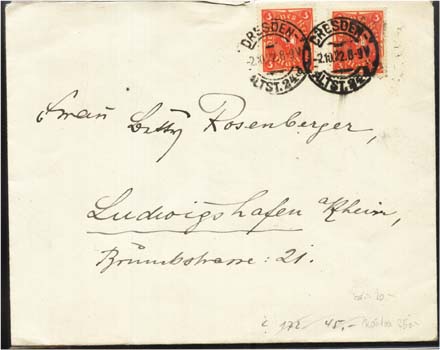 DRESDEN-
-2.10.22.8-9V
ALTST.24
DRESDEN-
-2.10.22.8-9V
ALTST.24
3
3
Frau Betty Rosenberger,
Ludwigshafen a/Rhein,
21.
45.-